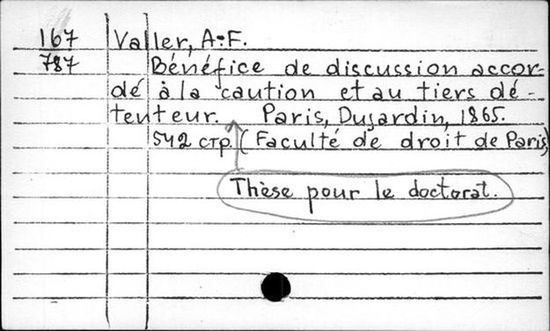 167 Valler, A-F.
787 Bénéfice de discussion accor-
dé à la caution et au tiers dé-
tenteur. Paris, Dujardin, 1865.
542 стр. (Faculté de droit de Paris)
Thèse pour le doctorat.